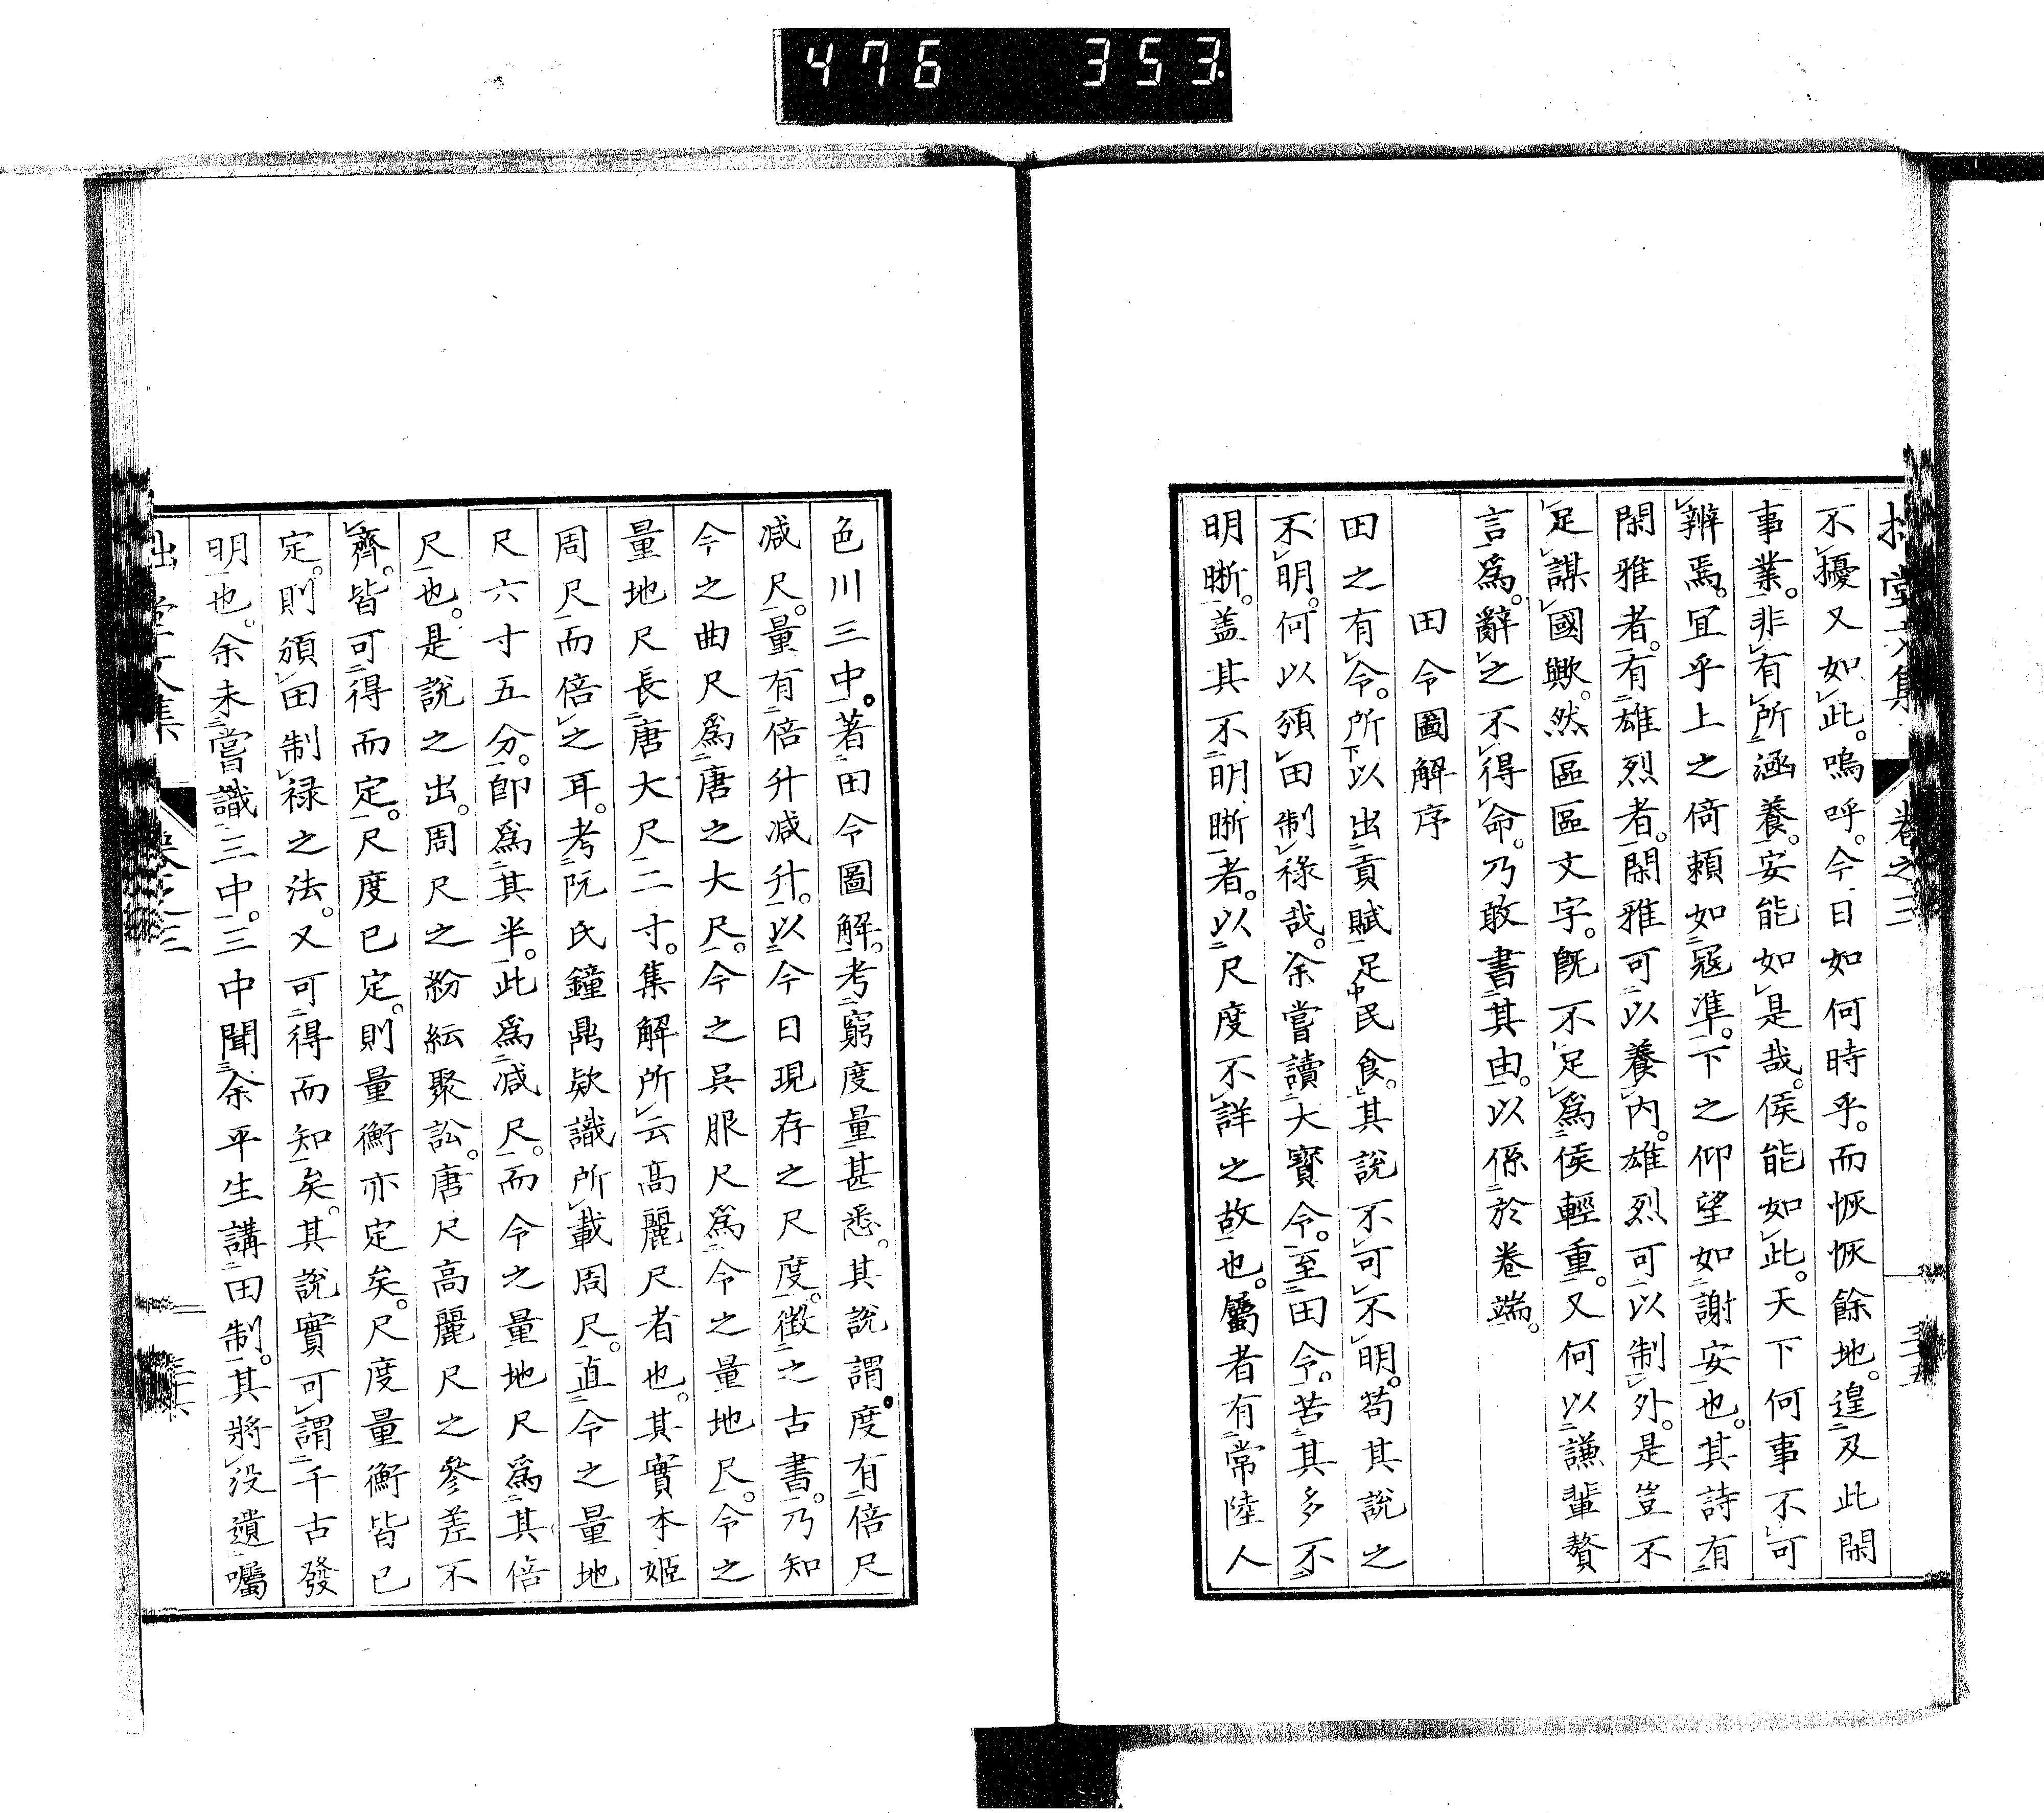 476 353
堂文集 卷之三
不擾又如此。嗚呼。今日如何時乎。而恢恢餘地。遑及此閑
事業。非有所涵養。安能如是哉。侯能如此。天下何事不可
辨焉。宜乎上之倚頼如寇準。下之仰望如謝安也。其詩有
閑雅者。有雄烈者。閑雅可以養內。雄烈可以制外。是豈不
足謀國歟。然區區文字。既不足爲侯輕重。又何以謙輩贅
言爲。辭之不得命。乃敢書其由。以係於卷端。
田令圖解序
田之有令。所以出貢賦足民食。其說不可不明。苟其說之
不明。何以頒田制祿哉。余嘗讀大寶令。至田令。苦其多不
明晰。盖其不明晰者。以尺度不詳之故也。屬者有常陸人
色川三中。著田令圖解。考窮度量甚悉。其說謂。度有倍尺
減尺。量有倍升減升。以今日現存之尺度。徴之古書。乃知
今之曲尺爲唐之大尺。今之呉服尺爲今之量地尺。今之
量地尺長唐大尺二寸。集解所云高麗尺者也。其實本姬
周尺而倍之耳。考阮氏鐘鼎欵識所載周尺。直今之量地
尺六寸五分。卽爲其半。此爲減尺。而今之量地尺爲其倍
尺也。是說之出。周尺之紛紜聚訟。唐尺高麗尺之參差不
齊。皆可得而定。尺度已定。則量衡亦定矣。尺度量衡皆已
定。則頒田制祿之法。又可得而知矣。其說實可謂千古發
明也。余未嘗識三中。三中聞余平生講田制。其將沒遺囑
堂文集 卷之三